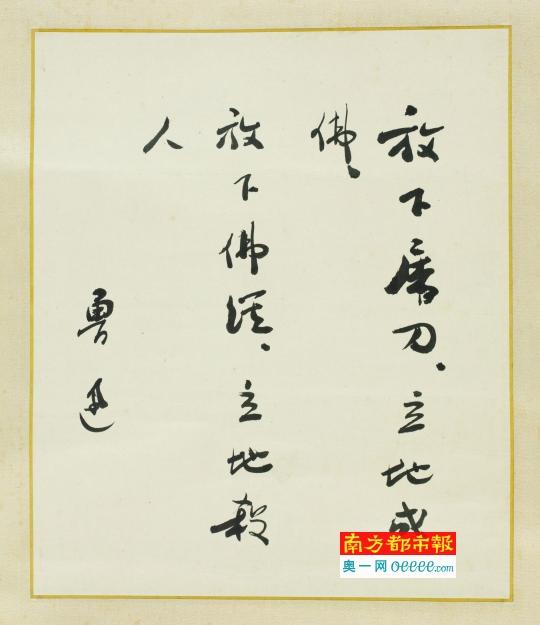 放下屠刀、立地成
佛、
放下佛經、立地殺
人
魯迅
南方都市報
奥一网 oeeee.com